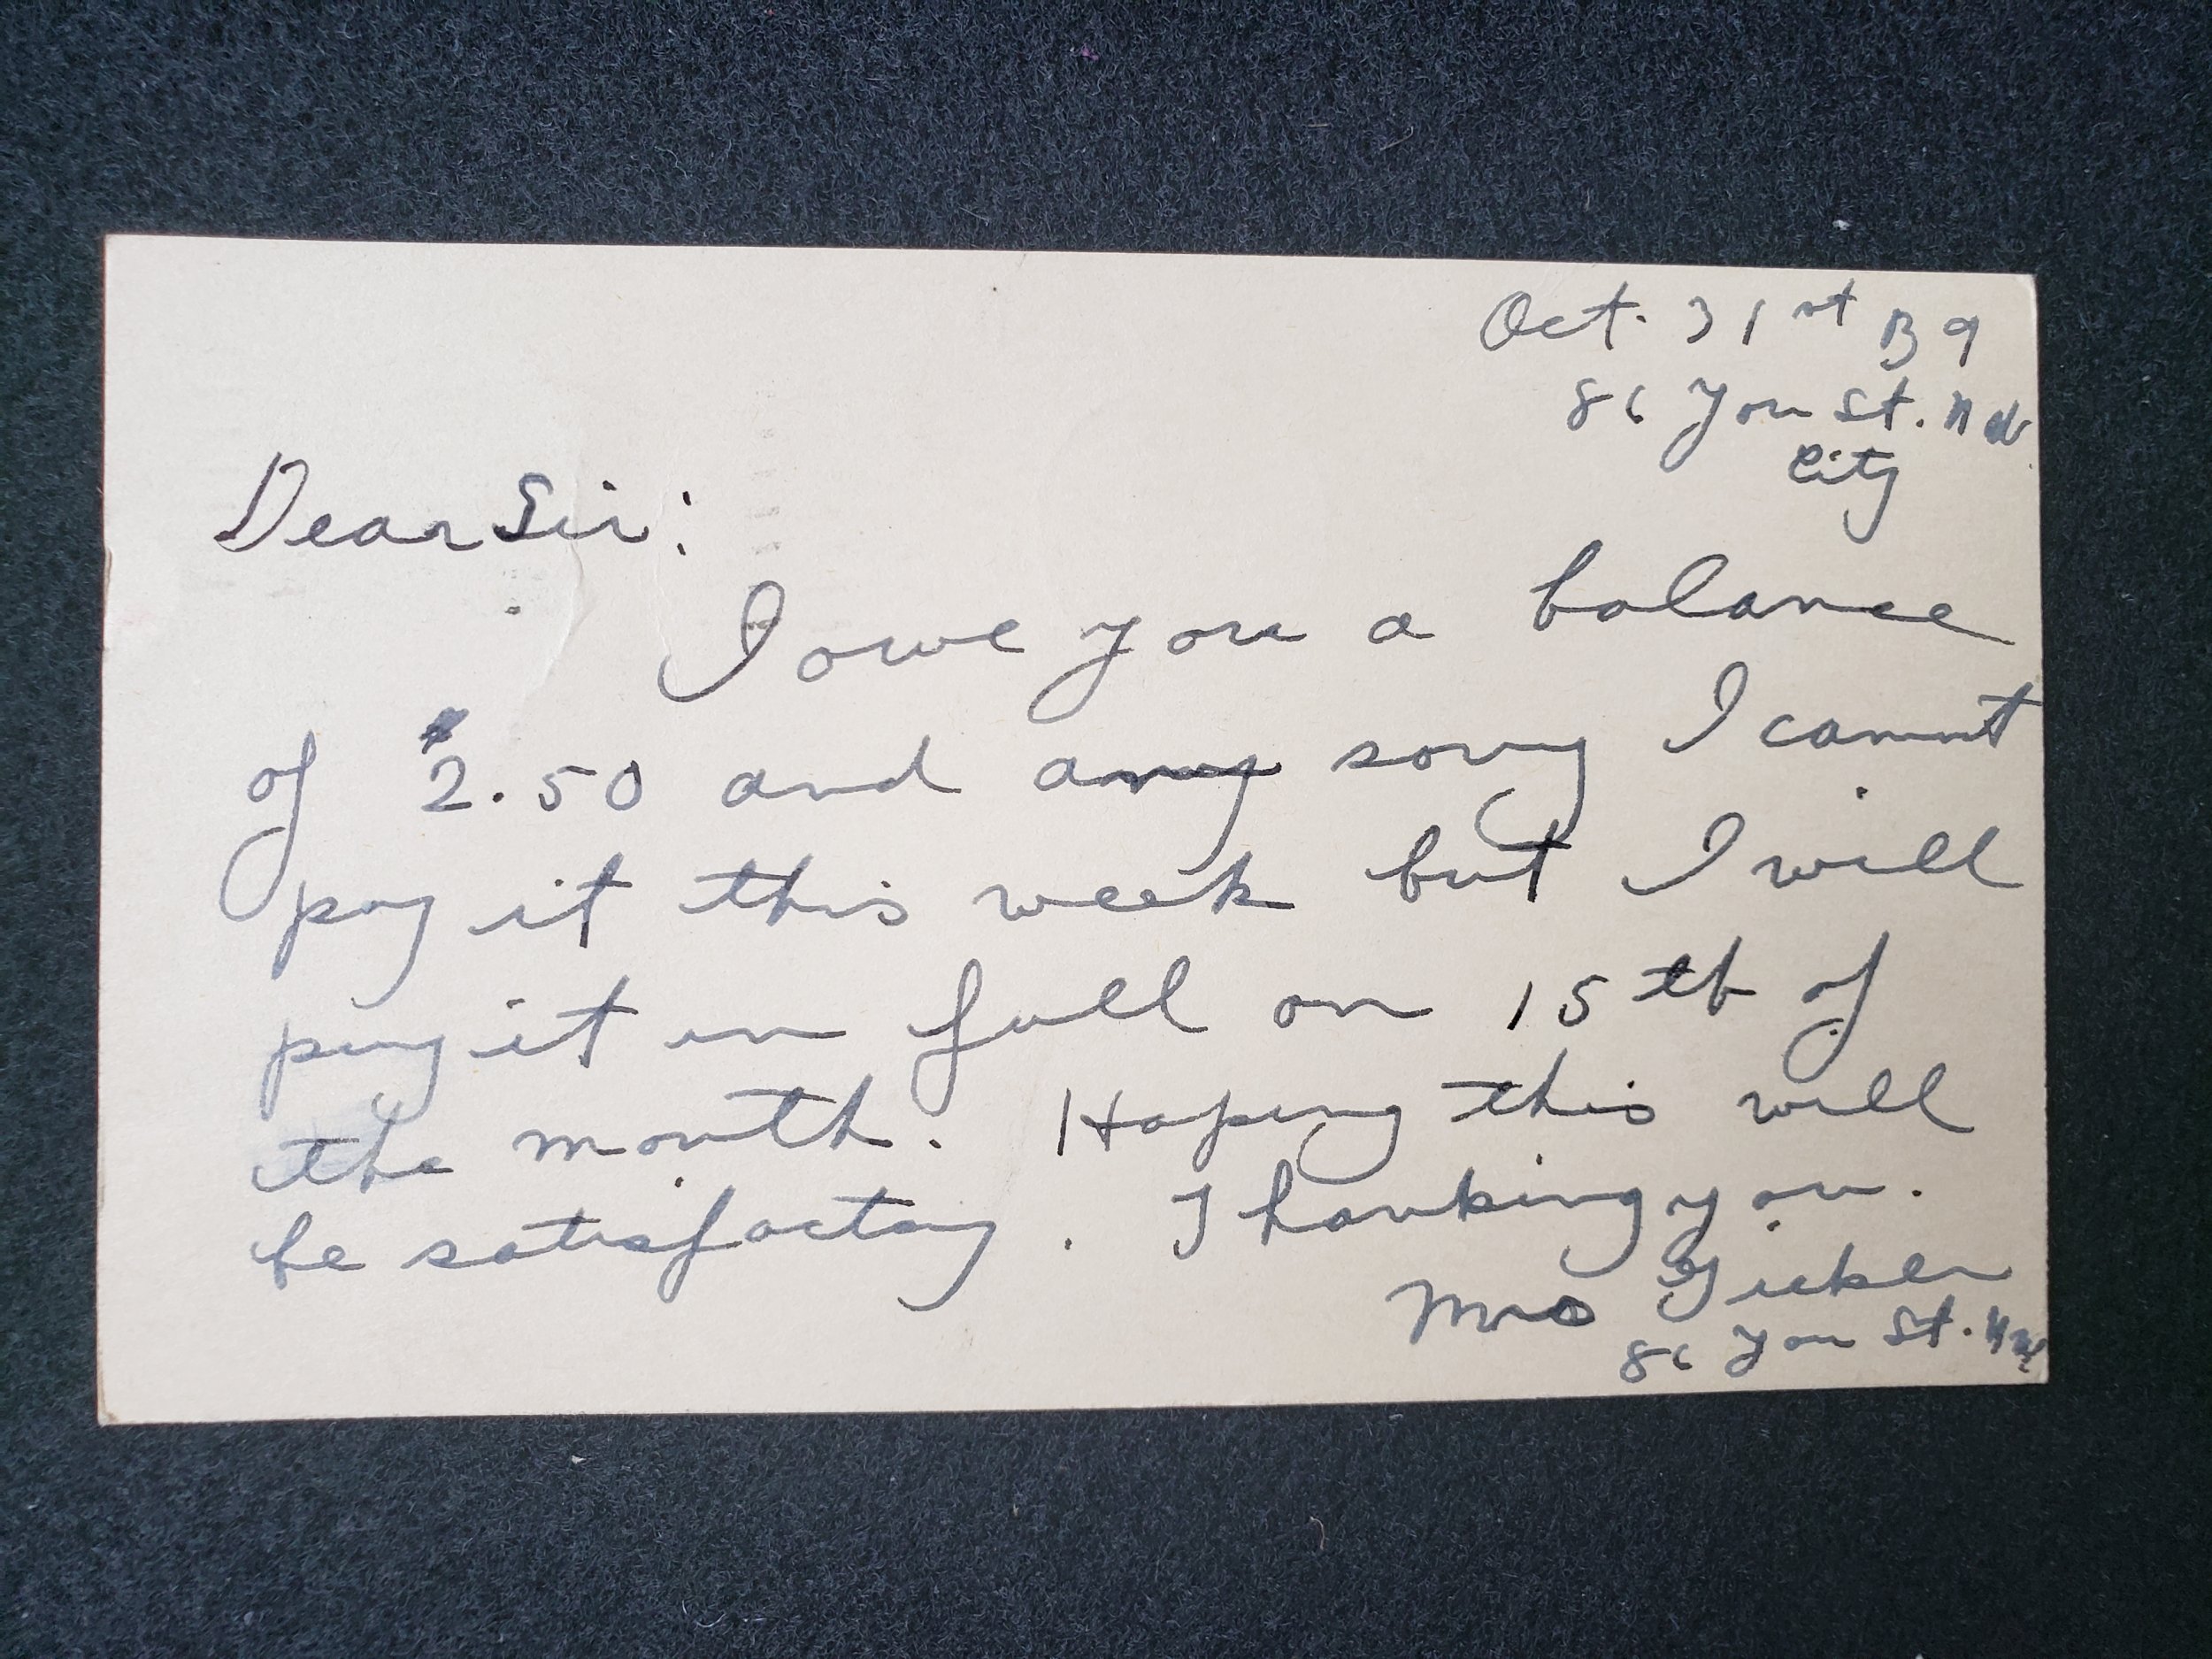 Oct. 31st 39
86 You St. N W.
City
Dear Sir:
I owe you a balance
of $2.50 and am sorry I cannot
pay it this week but I will
pay it in full on 15th of
the month. Hoping this will
be satisfactory. Thanking you.
Mrs
86 You St. N W